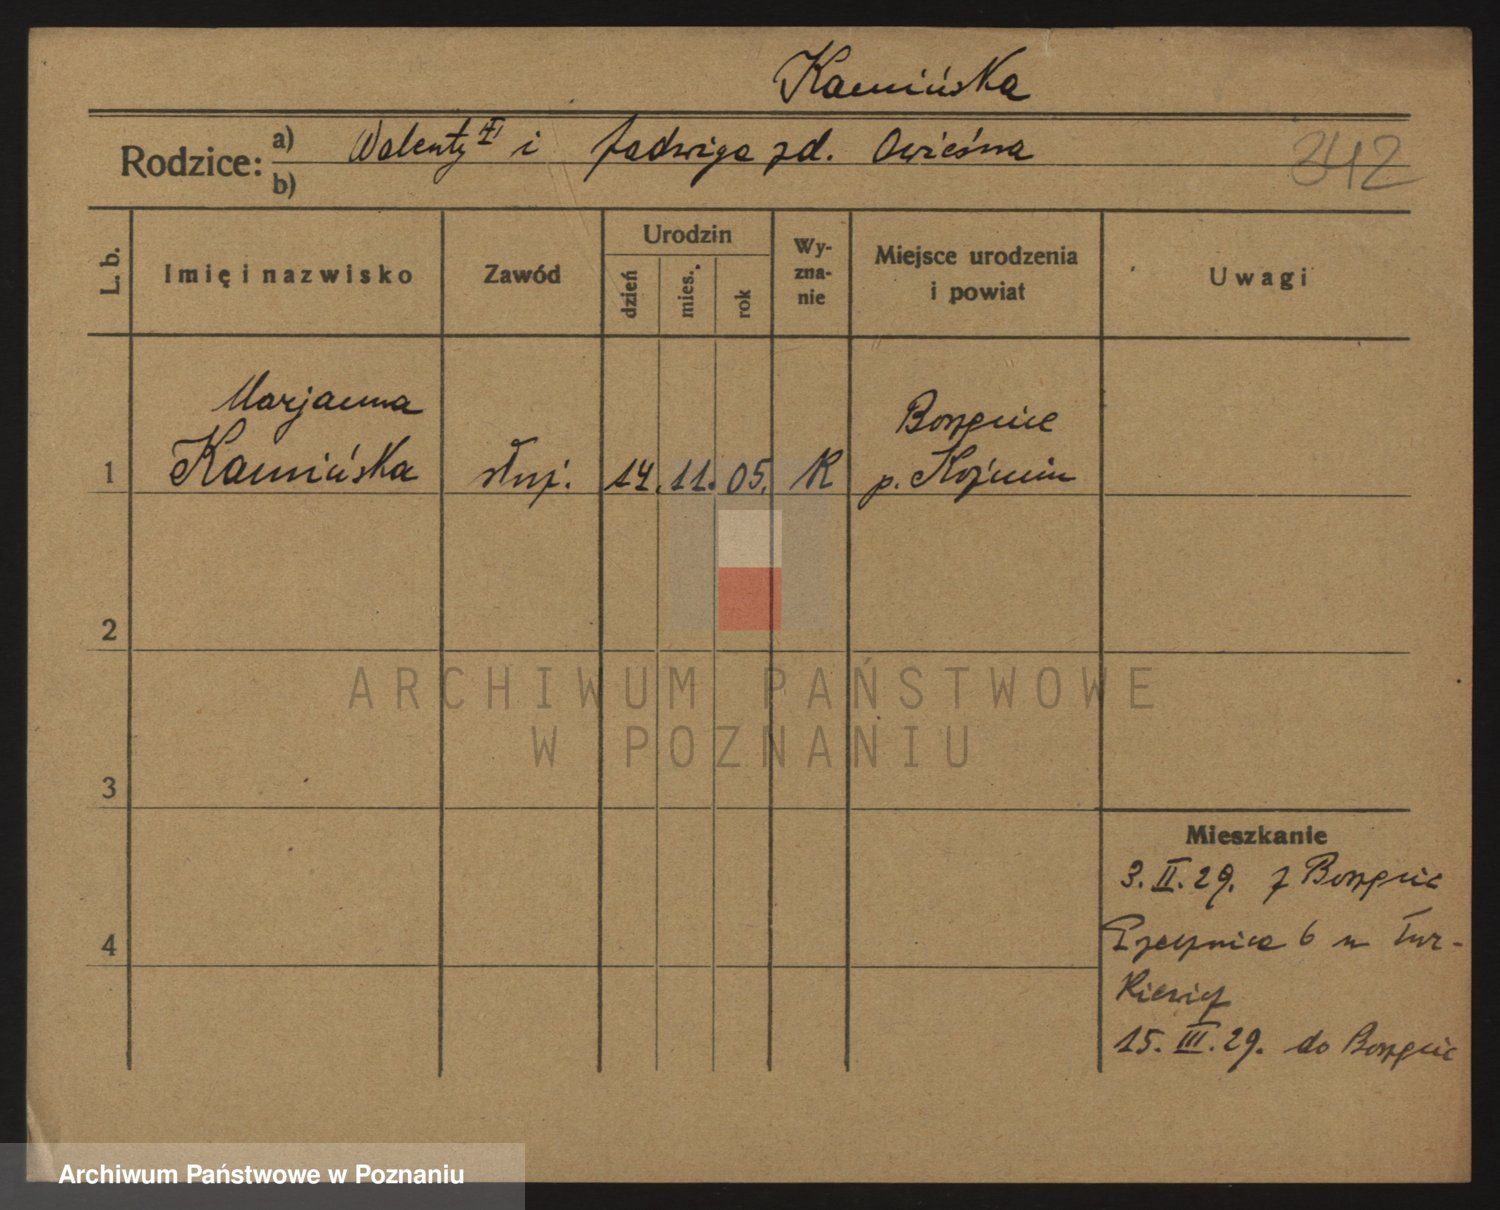 Kamińska
Rodzice: a) Walenty i Jadwiga zd. Owieśna
b)
342
L. b.
Imię i nazwisko
Zawód
Urodzin
dzień
mies.
rok
Wy-
zna-
nie
Miejsce urodzenia
i powiat
Uwagi
Marjanna
1 Kamińska służ. 14. 11. 05. R
p. Koźmin
2
3
4
Mieszkanie
3. II. 29. z
6 u Tur-
kiewicz
15. III. 29. do
ARCHIWUM PAŃSTWOWE
W POZNANIU
Archiwum Państwowe w Poznaniu